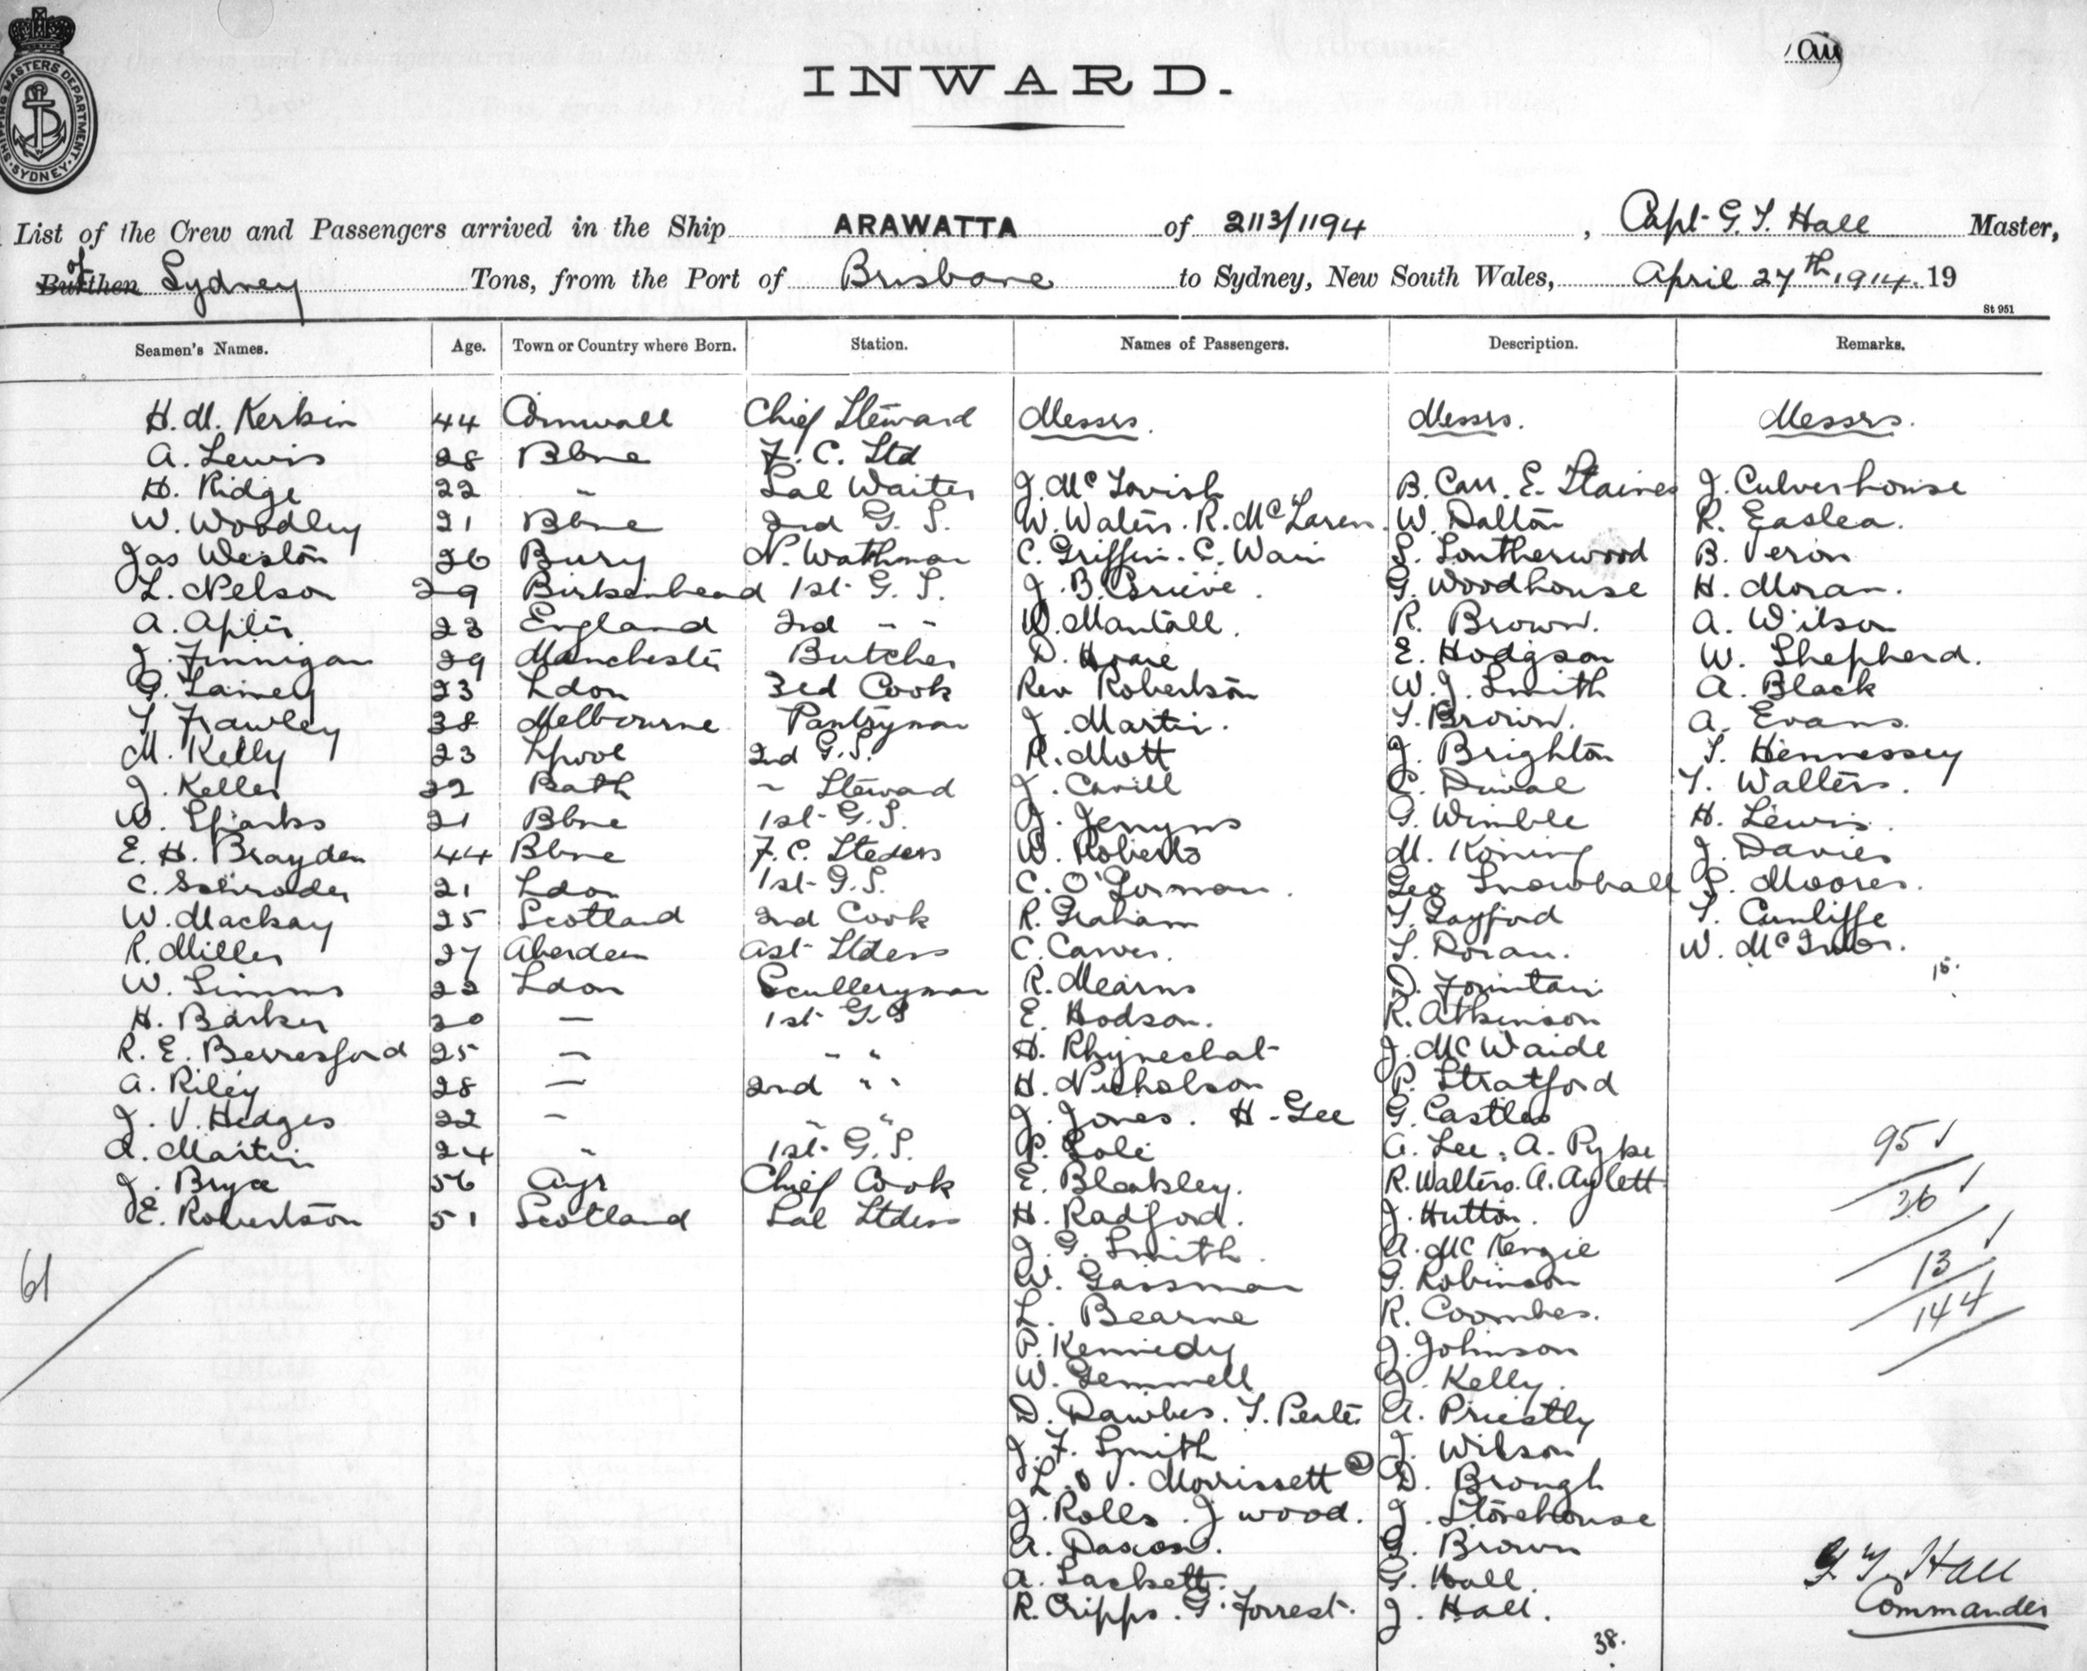 SHIPPING MASTERS DEPARTMENT. SYDNEY.
INWARD.
List of the Crew and Passengers arrived in the Ship ARAWATTA of 2113/1194, Capt G. T. Hall Master,
Burthen of Sydney Tons, from the Port of Brisbane to Sydney, New South Wales, April 27th 1914. 19
St 951
Seamen's Names. Age. Town or Country where Born. Station. Names of Passengers. Description. Remarks.
H. M. Kerkin 44 Cornwall Chief Steward Messrs. Messrs. Messrs.
A. Lewis 28 Bbne F. C. Std
H. Ridge 22 " Sal Waiter J. McTavish B. Carr. E. Staines J. Culverhouse
W. Woodley 21 Bbne 2nd G. S. W. Waters. R. McLaren. W. Dalton R. Easlea.
Jas Weston 26 Bury N. Watchman C. Griffin. C. Wain S. Southerwood B. Veron
L. Nelson 29 Birkenhead 1st G. S. J. B. Grieve. G. Woodhouse H. Moran.
A. Apter 23 England 2nd " " W. Mantall. R. Brown. A. Wilson
J. Finnigan 29 Manchester Butcher D. Hoare E. Hodgson W. Shepherd.
G. Lainey 23 Ldon 3rd Cook Rev Robertson W. J. Smith A. Black
T. Frawley 38 Melbourne Pantryman J. Martin. T. Brown. A. Evans.
M. Kelly 23 Lpool 2nd G. S. R. Mott J. Brighton T. Hennessey
J. Keller 22 Bath " Steward J. Cavill C. Duval T. Walters.
W. Sparks 21 Bbne 1st G. S. J. Jenyns G. Wimble H. Lewis.
E. H. Brayden 44 Bbne F. C. Stdess W. Roberts M. Koning J. Davies
C. Schroder 21 Ldon 1st G. S. C. O'Gorman. Geo Snowball P. Moores.
W. Mackay 25 Scotland 2nd Cook R. Graham T. Gayford T. Cunliffe
R. Miller 27 Aberdeen Ast Stdess C. Carver. T. Doran. W. 
W. Simms 22 Ldon Sculleryman R. Mearns D. Fountain 15.
H. Barker 20 — 1st G. S E. Hodson. R. Atkinson
R. E. Berresford 25 — " " H. Rhynechat J. McWaide
A. Riley 28 — 2nd " " H. Nicholson P. Stratford
J. V. Hedges 22 " " " J. Jones. H. Gee G. Castles
A. Martin 24 " 1st G. S. P. Cole A. Lee. A. Pyke 95
J. Bryce 56 Ayr Chief Cook E. Bleakley. R. Walters. A. Aylett 36
E. Robertson 51 Scotland Sal Stdess H. Radford. J. Hutton.
61 J. G. Smith. A. McKenzie 13
W. Gassman G. Robinson
L. Bearne R. Coombes. 144
P. Kennedy J. Johnson
W. Gemmell J. Kelly.
D. Dawbes. T. Peate A. Priestly
J. F. Smith J. Wilson
L. & V. Morrissett 2 D. Brough
J. Rolls. J wood. J. Storehouse
A. Daxon. G. Brown
A. Lackett. G. Hall.
R. Cripps. G. Forrest. J. Hall.
38.
G. T. Hall
Commander